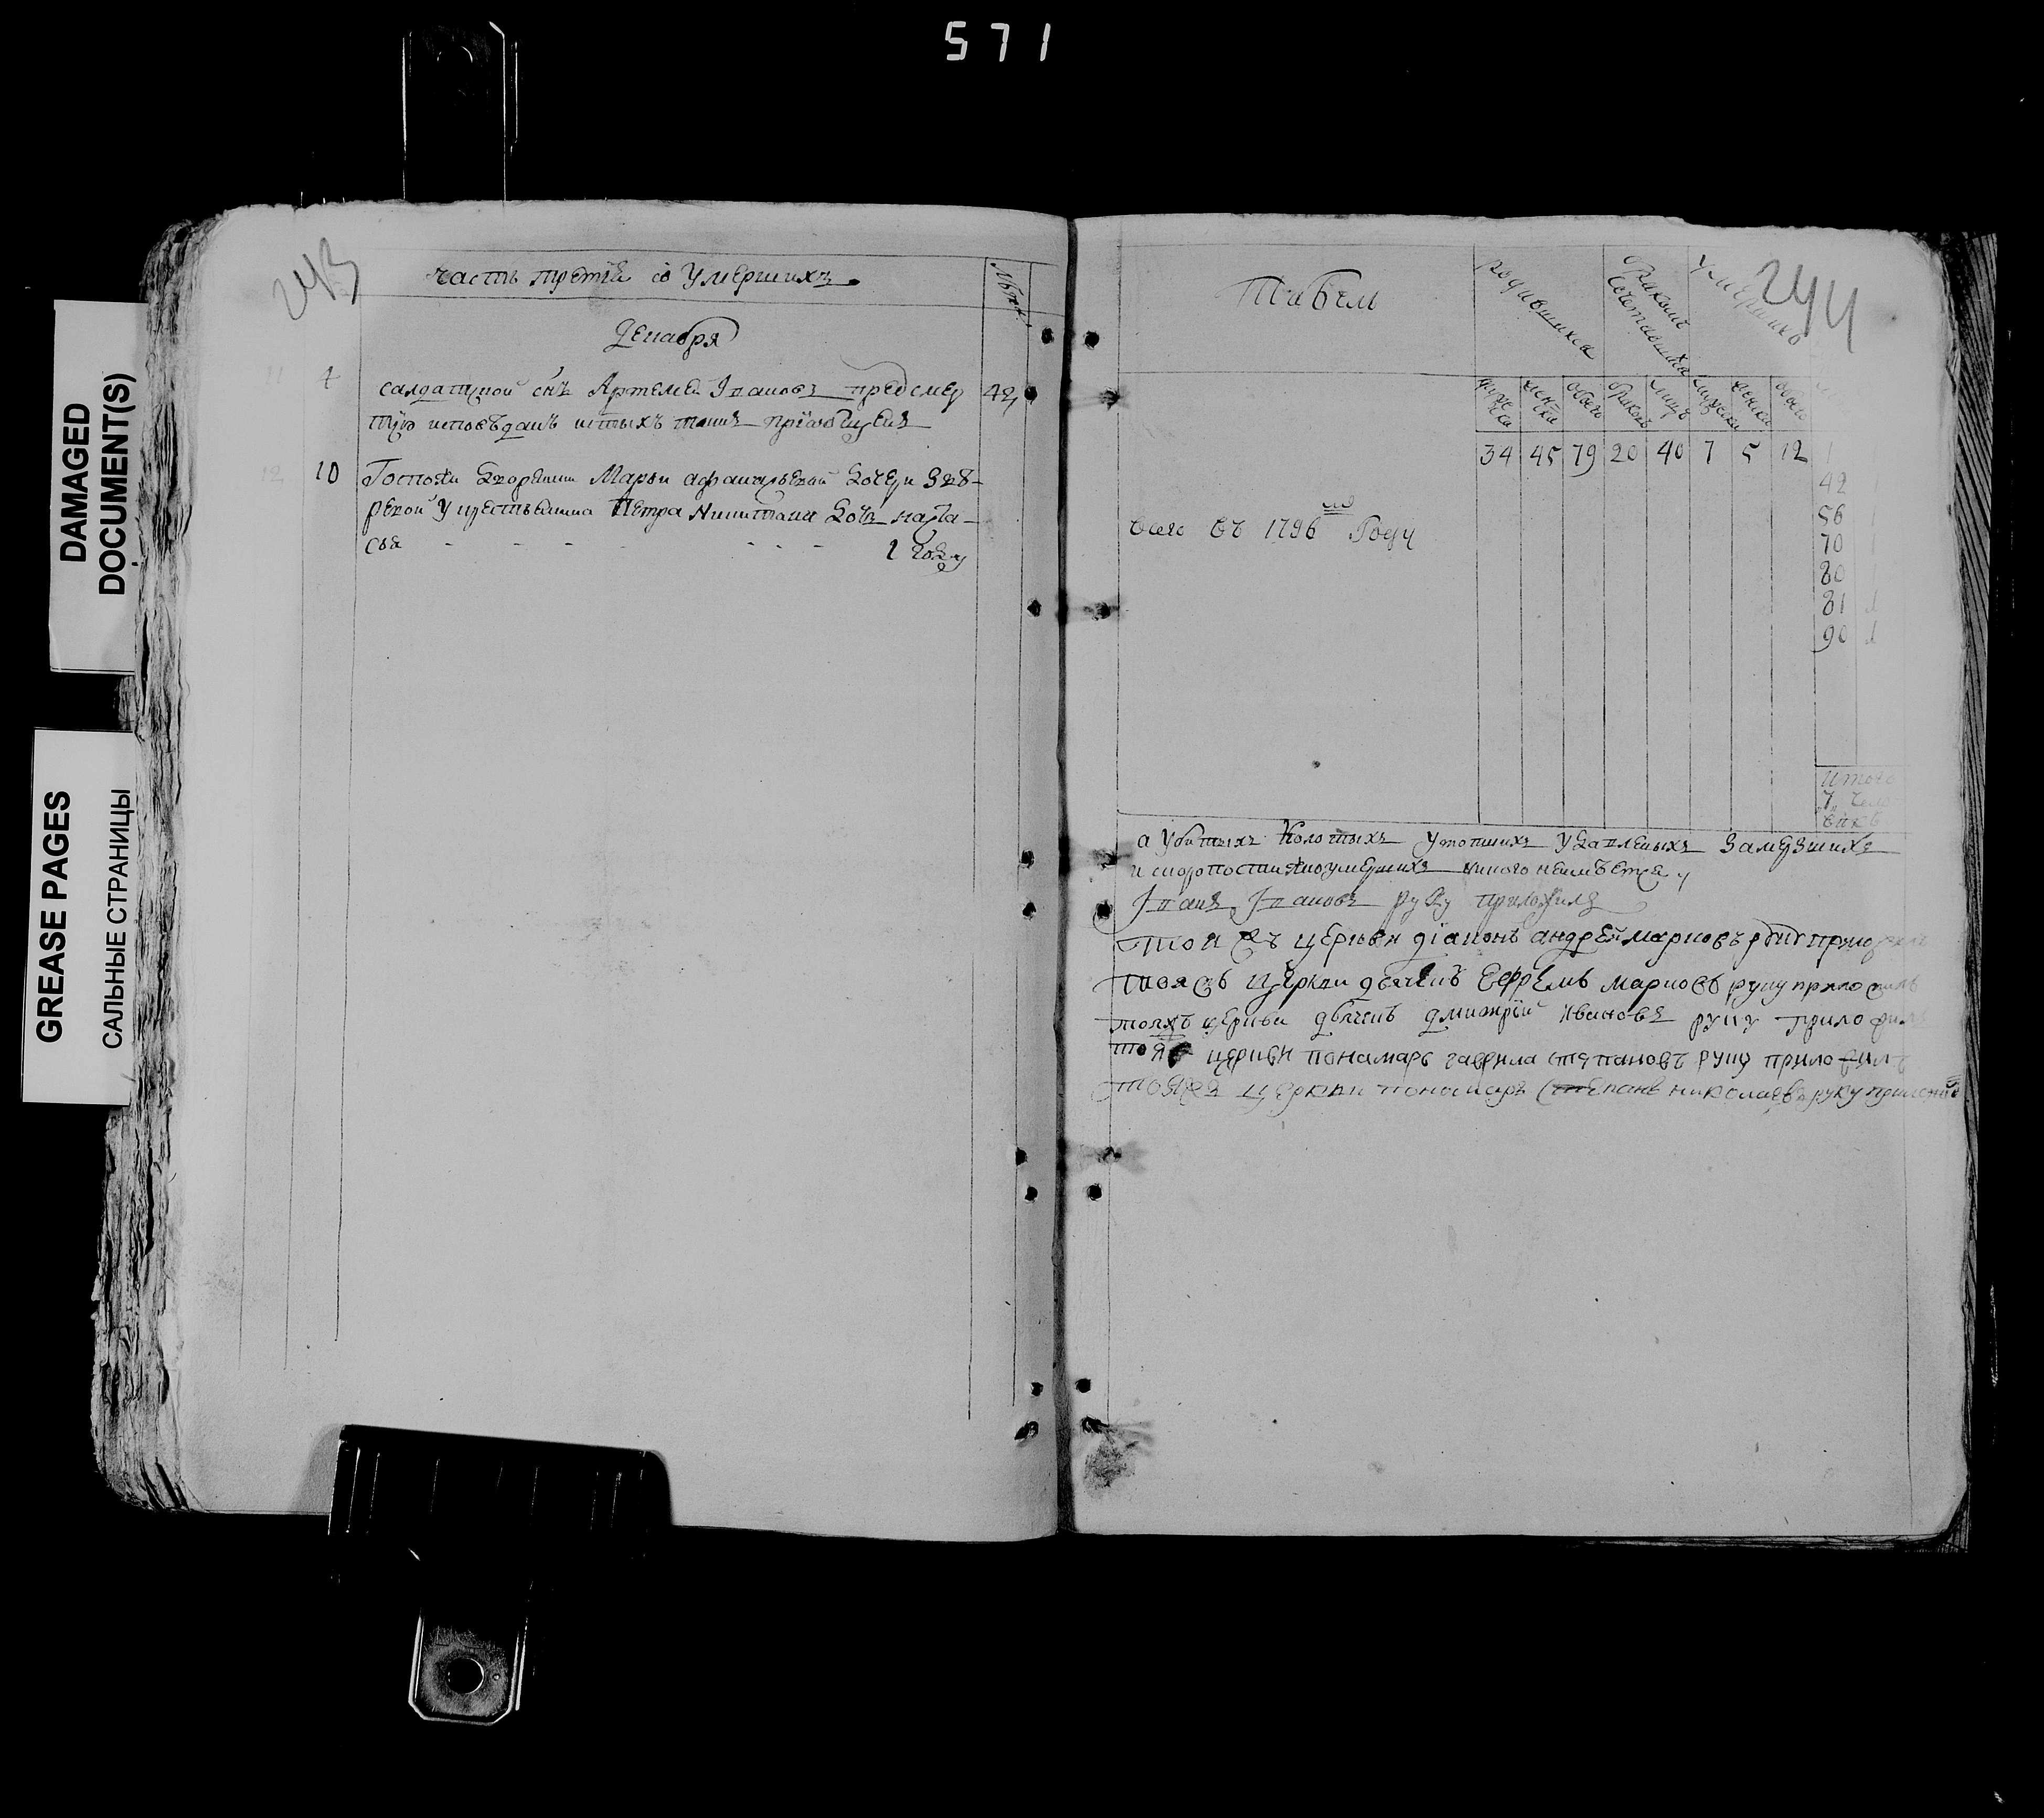 571
DAMAGED
DOCUMENT(S)
GREASE PAGES
САЛЬНЫЕ СТРАНИЦЫ
243
часть третія ѡ умершихъ
Декабря
11 4 салдатцкой снъ Артемей Iвановъ предсмер 42
тїю исповѣданъ истыхъ таинъ прїѡбщенъ
12 10 Госпожи Марьи дочери
Петра Никитина дочь наста-
сья 1 году
244
Табель
родившихся
браком сочетавшихся
умерших
мужеска женска обоего браковъ лицъ мужеска женска обоего
34 45 79 20 40 7 5 12 1
42
56
70
80
81
90
всего въ 1796 мъ Году
Итого
7 чело
векъ
а убитыхъ Колотыхъ утопшихъ удавленыхъ замерзшихъ
и скоропостижноумершихъ никого неимѣется
Iванъ Iвановъ руку приложилъ
тоя жъ церкви дїаконъ андрей марковъ руку приложилъ
тоя жъ церкви дьячекъ Ефремъ марковъ руку приложилъ
тояжъ церкви дьячекъ дмитрїй ивановъ руку приложилъ
тояж церкви понамарь гаврила степановъ руку приложилъ
тояжъ церкви понамарь степанъ николаевъ руку приложилъ